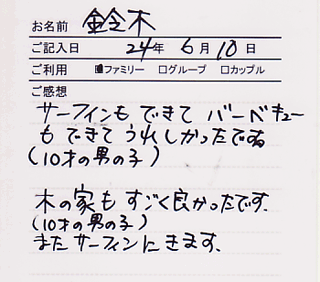 お名前 鈴木
ご記入日 24年 6月 10日
ご利用 ■ファミリー □グループ □カップル
ご感想
サーフィンも できて バーベキュー
も できて うれしかったです
(10才の男の子)
木の家も すごく良かったです.
(10才の男の子)
またサーフィンにきます.